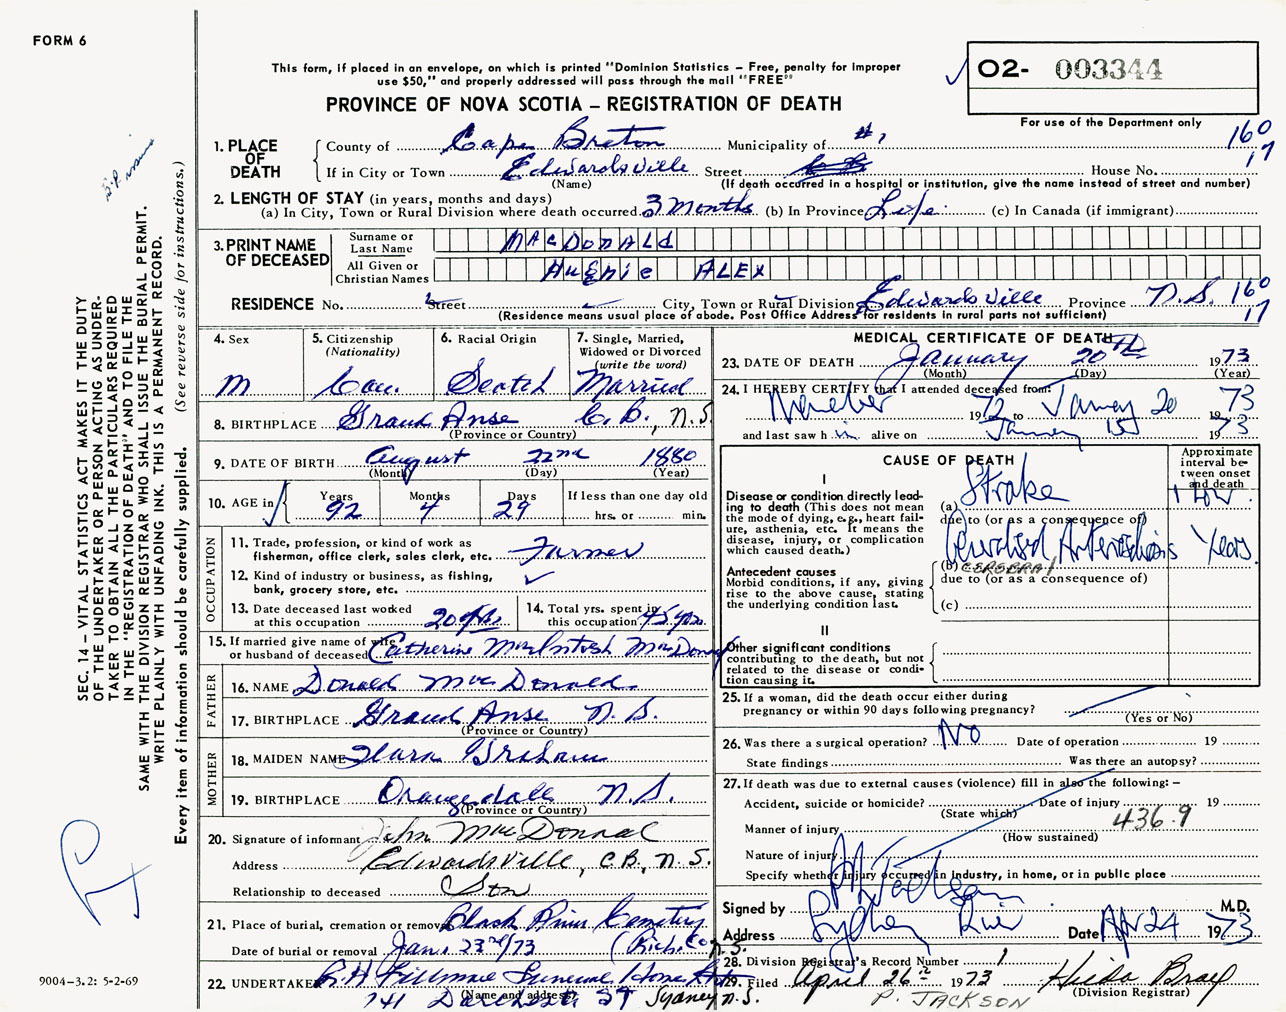 FORM 6
This form, if placed in an envelope, on which is printed "Dominion Statistics – Free, penalty for improper
use $50," and properly addressed will pass through the mail "FREE"
PROVINCE OF NOVA SCOTIA – REGISTRATION OF DEATH
O2- 003344
For use of the Department only
160
17
1. PLACE OF DEATH
County of Cape Breton Municipality of #1
If in City or Town Edwardsville Street House No.
(Name) (If death occurred in a hospital or institution, give the name instead of street and number)
2. LENGTH OF STAY (in years, months and days)
(a) In City, Town or Rural Division where death occurred 3 Months (b) In Province Life (c) In Canada (if immigrant)
3. PRINT NAME OF DECEASED
Surname or Last Name MACDONALD
All Given or Christian Names HUGHIE ALEX
RESIDENCE No. Street City, Town or Rural Division Edwardsville Province N.S. 160
(Residence means usual place of abode. Post Office Address for residents in rural parts not sufficient) 17
4. Sex M
5. Citizenship (Nationality) Can.
6. Racial Origin Scotch
7. Single, Married, Widowed or Divorced (write the word) Married
8. BIRTHPLACE Grand Anse C.B., N.S.
(Province or Country)
9. DATE OF BIRTH August 22nd 1880
(Month) (Day) (Year)
10. AGE in Years 92 Months 4 Days 29 If less than one day old hrs. or min.
OCCUPATION
11. Trade, profession, or kind of work as fisherman, office clerk, sales clerk, etc. Farmer
12. Kind of industry or business, as fishing, bank, grocery store, etc.
13. Date deceased last worked at this occupation 20 yrs.
14. Total yrs. spent in this occupation 45 yrs.
15. If married give name of wife or husband of deceased Catherine MacIntosh MacDonald
FATHER
16. NAME Donald MacDonald
17. BIRTHPLACE Grand Anse N.S.
(Province or Country)
MOTHER
18. MAIDEN NAME Flora Graham
19. BIRTHPLACE Orangedale N.S.
(Province or Country)
20. Signature of informant John MacDonald
Address Edwardsville, C.B., N.S.
Relationship to deceased Son
21. Place of burial, cremation or removal Black River Cemetery
Date of burial or removal Jan. 23rd/73 (Rich. Co. N.S.
22. UNDERTAKER Funeral Home
(Name and address) 741 St Sydney N.S.
MEDICAL CERTIFICATE OF DEATH
23. DATE OF DEATH January 20th 1973
(Month) (Day) (Year)
24. I HEREBY CERTIFY that I attended deceased from:
1972 to January 20 1973
and last saw him alive on January 15 1973
CAUSE OF DEATH
Approximate interval between onset and death
I
Disease or condition directly leading to death (This does not mean the mode of dying, e.g., heart failure, asthenia, etc. It means the disease, injury, or complication which caused death.)
(a) Stroke 1 hour
due to (or as a consequence of)
Antecedent causes
Morbid conditions, if any, giving rise to the above cause, stating the underlying condition last.
(b) Generalised Arteriosclerosis Years
CEREBRAL
due to (or as a consequence of)
(c)
II
Other significant conditions contributing to the death, but not related to the disease or condition causing it.
25. If a woman, did the death occur either during pregnancy or within 90 days following pregnancy?
(Yes or No)
26. Was there a surgical operation? No Date of operation 19
State findings Was there an autopsy?
27. If death was due to external causes (violence) fill in also the following: –
Accident, suicide or homicide? Date of injury 19
(State which)
Manner of injury 436.9
(How sustained)
Nature of injury
Specify whether injury occurred in industry, in home, or in public place
Signed by M.D.
Address Sydney River Date Apr 24 1973
28. Division Registrar's Record Number 1
29. Filed April 26th 1973 Hilda
(Division Registrar)
P. JACKSON
SEC. 14 – VITAL STATISTICS ACT MAKES IT THE DUTY
OF THE UNDERTAKER OR PERSON ACTING AS UNDER-
TAKER TO OBTAIN ALL THE PARTICULARS REQUIRED
IN THE "REGISTRATION OF DEATH" AND TO FILE THE
SAME WITH THE DIVISION REGISTRAR WHO SHALL ISSUE THE BURIAL PERMIT.
WRITE PLAINLY WITH UNFADING INK. THIS IS A PERMANENT RECORD.
Every item of information should be carefully supplied. (See reverse side for instructions.)
9004–3.2: 5-2-69